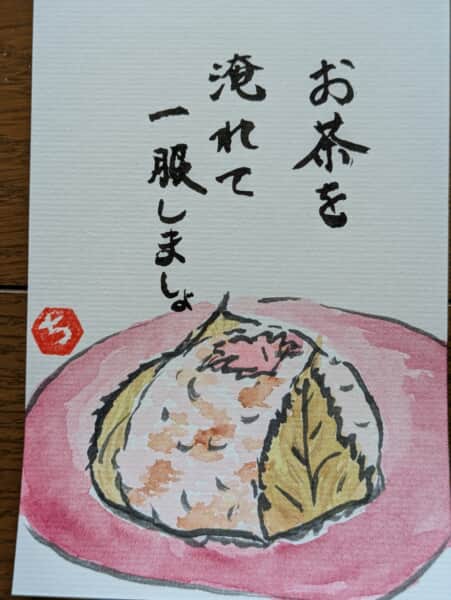 お茶を
淹れて
一服しましょ
ち